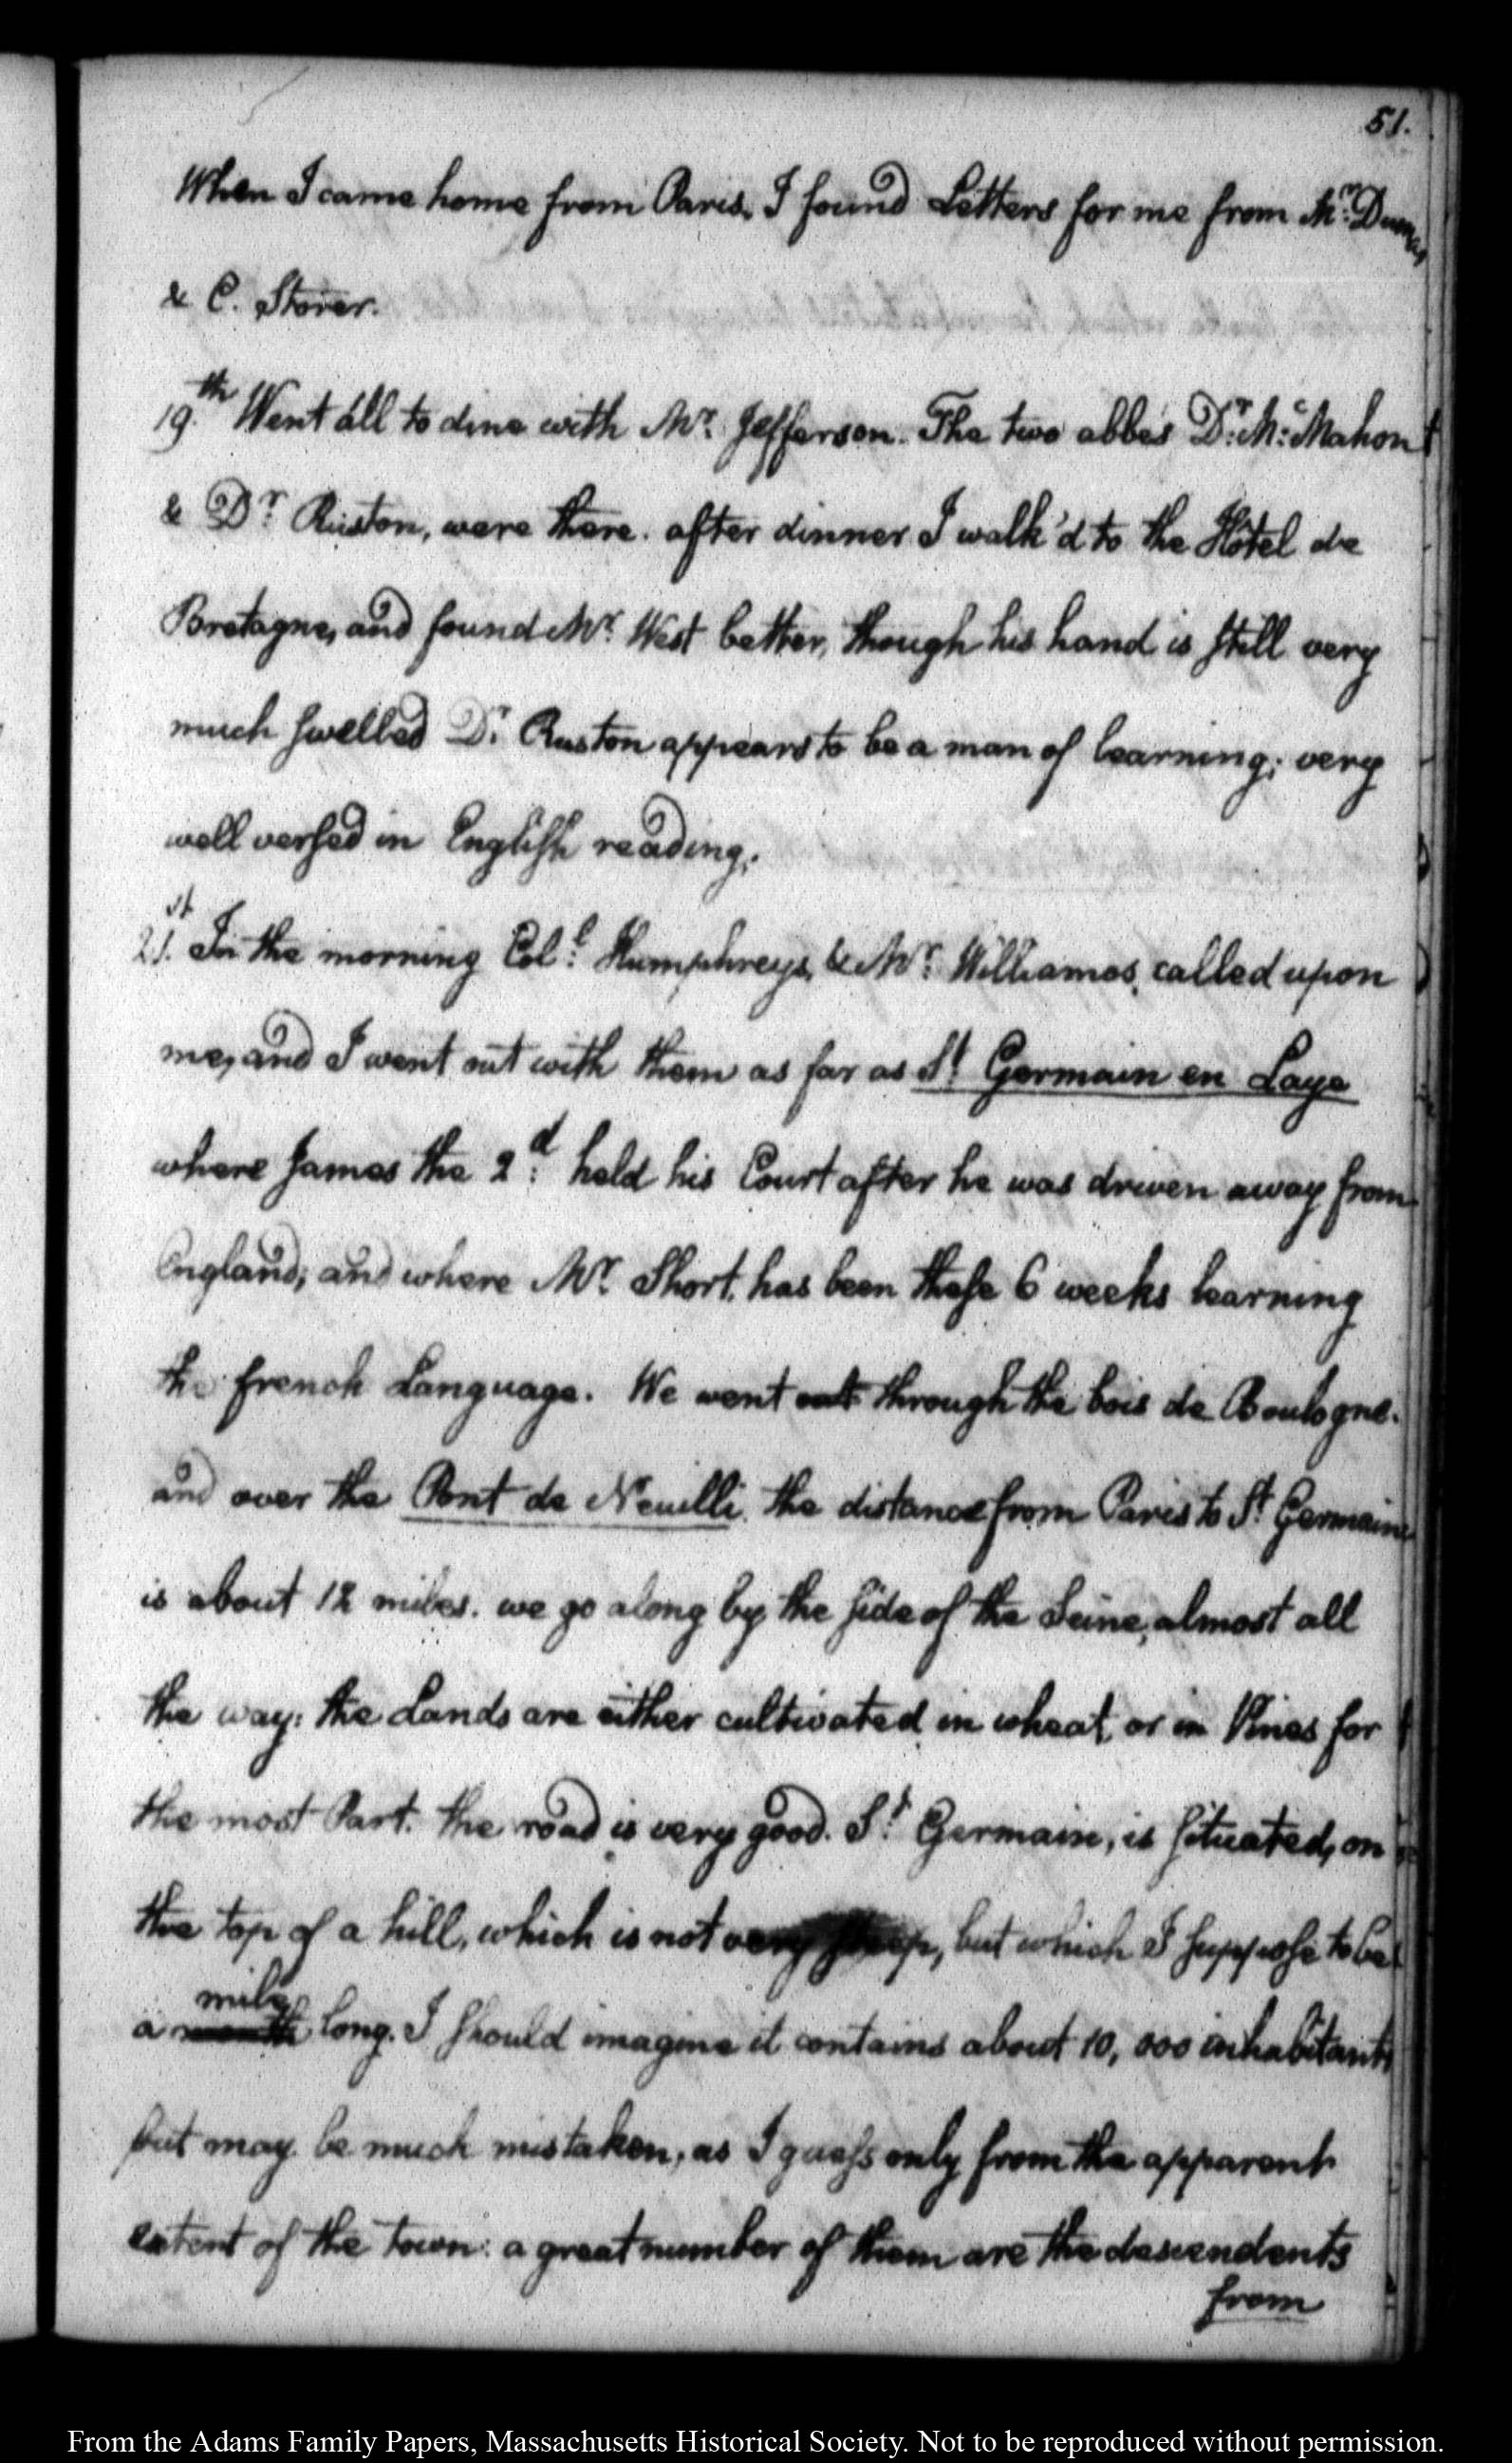 51.
When I came home from Paris, I found Letters for me from Mr: Dumas
& C. Storer.
19.th Went all to dine with Mr. Jefferson. The two abbés Dr. Mc: Mahon
& Dr. Ruston, were there. after dinner I walk'd to the Hôtel de
Bretagne, and found Mr. West better, though his hand is still very
much swelled Dr. Ruston appears to be a man of learning; very
well versed in English reading.
21.st In the morning Col.l Humphreys, & Mr. Williamos, called upon
me, and I went out with them as far as St Germain en Laye
where James the 2.d held his Court after he was driven away from
England; and where Mr. Short, has been these 6 weeks learning
the french Language. We went out through the bois de Boulogne.
and over the Pont de Neuilli. the distance from Paris to St Germain
is about 12 miles. we go along by the side of the Seine, almost all
the way: the Lands are either cultivated in wheat, or in Vines for
the most Part. the road is very good. St. Germain, is situated, on
the top of a hill, which is not very steep, but which I suppose to be
mile
a month long. I should imagine it contains about 10,000 inhabitants
but may be much mistaken, as I guess only from the apparent
extent of the town: a great number of them are the descendents
from
From the Adams Family Papers, Massachusetts Historical Society. Not to be reproduced without permission.